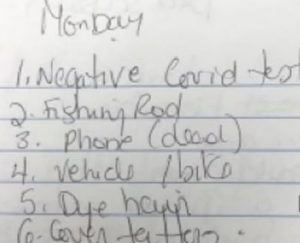 Monday
1. Negative Covid test
2. Fishing Rod
3. Phone (dead)
4. Vehicle /bike
5. Dye hair
6. Cover tattoos.